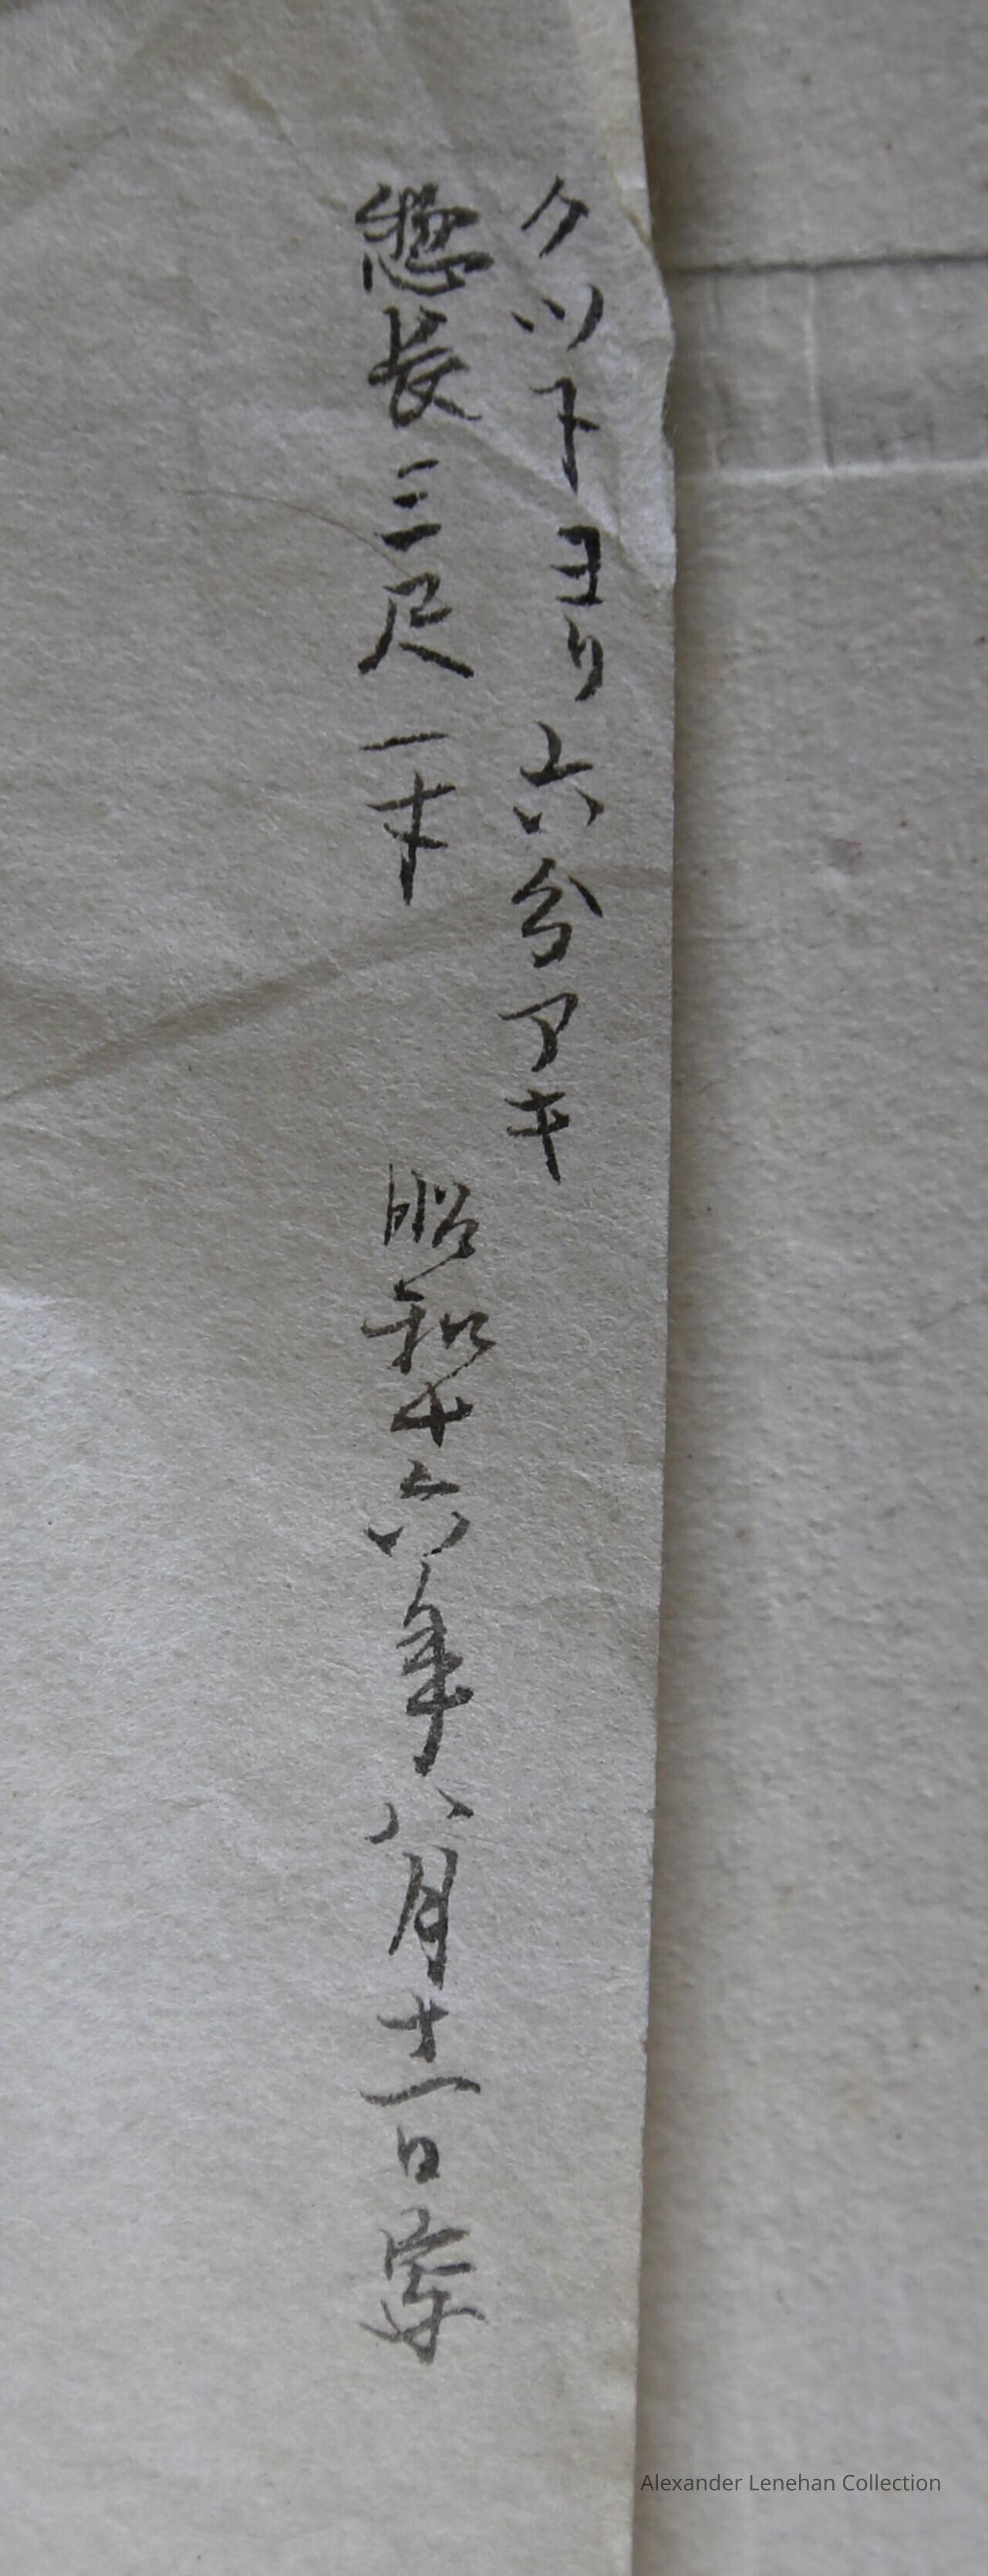 クツ下ヨリ六分アキ
惣長三尺一寸 昭和十六年八月十一日案
Alexander Lenehan Collection